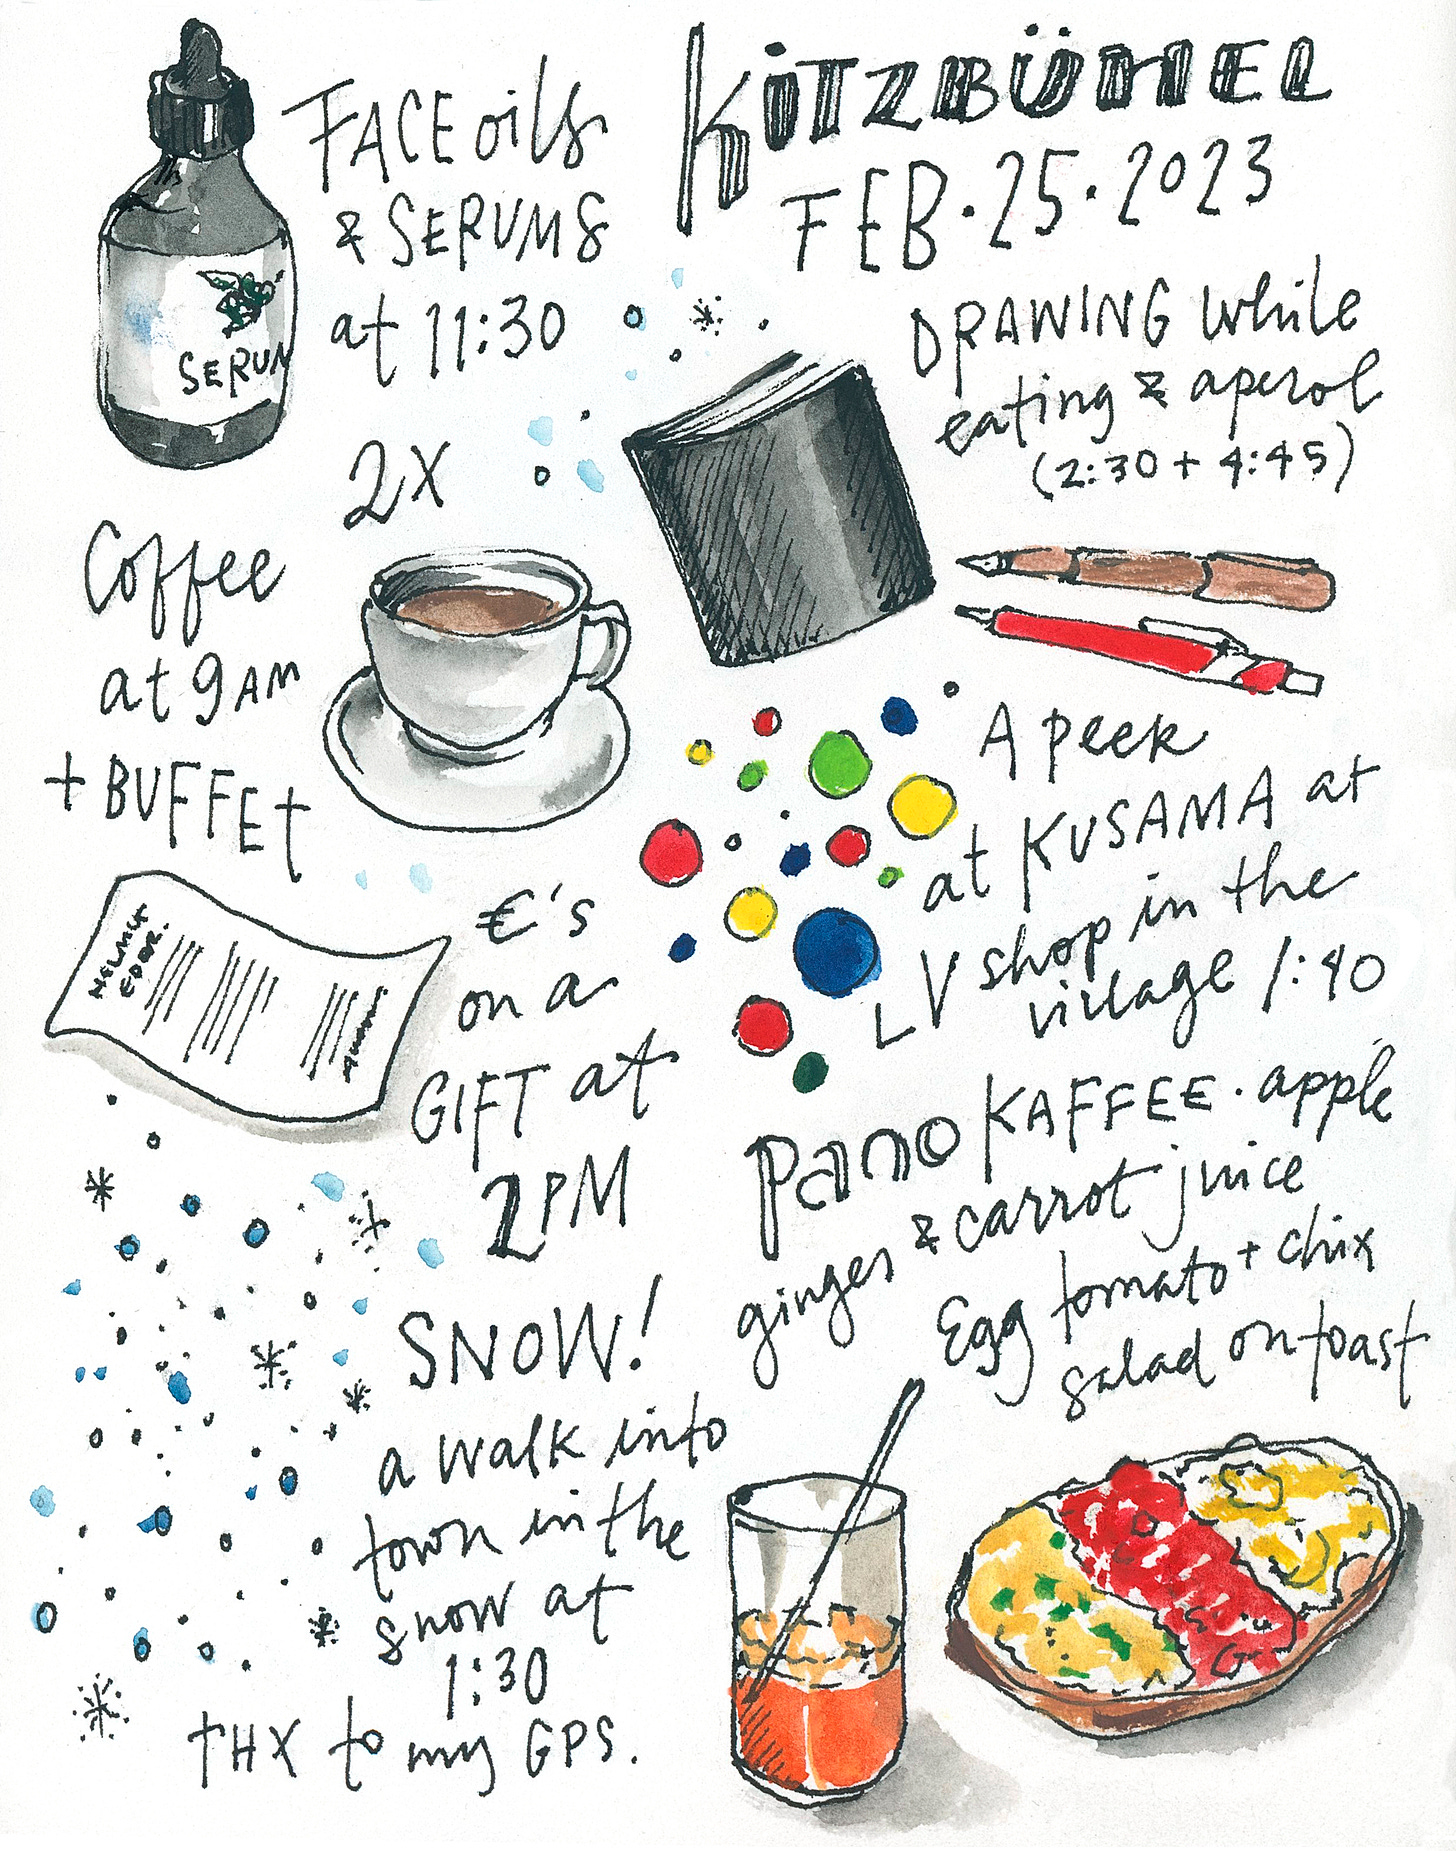 KITZBÜHEL
FEB.25.2023
FACE oils
& SERUMS
at 11:30
SERUM
DRAWING while
eating & aperol
(2:30 + 4:45)
2X
Coffee
at 9AM
+ BUFFEt
A peek
at KUSAMA at
LV shop in the
village 1:40
€'s
on a
GIFT at
2PM
Pano KAFFEE. apple
ginger & carrot juice
Egg tomato + chix
salad on toast
SNOW!
a walk into
town in the
snow at
1:30
tHX to my GPS.